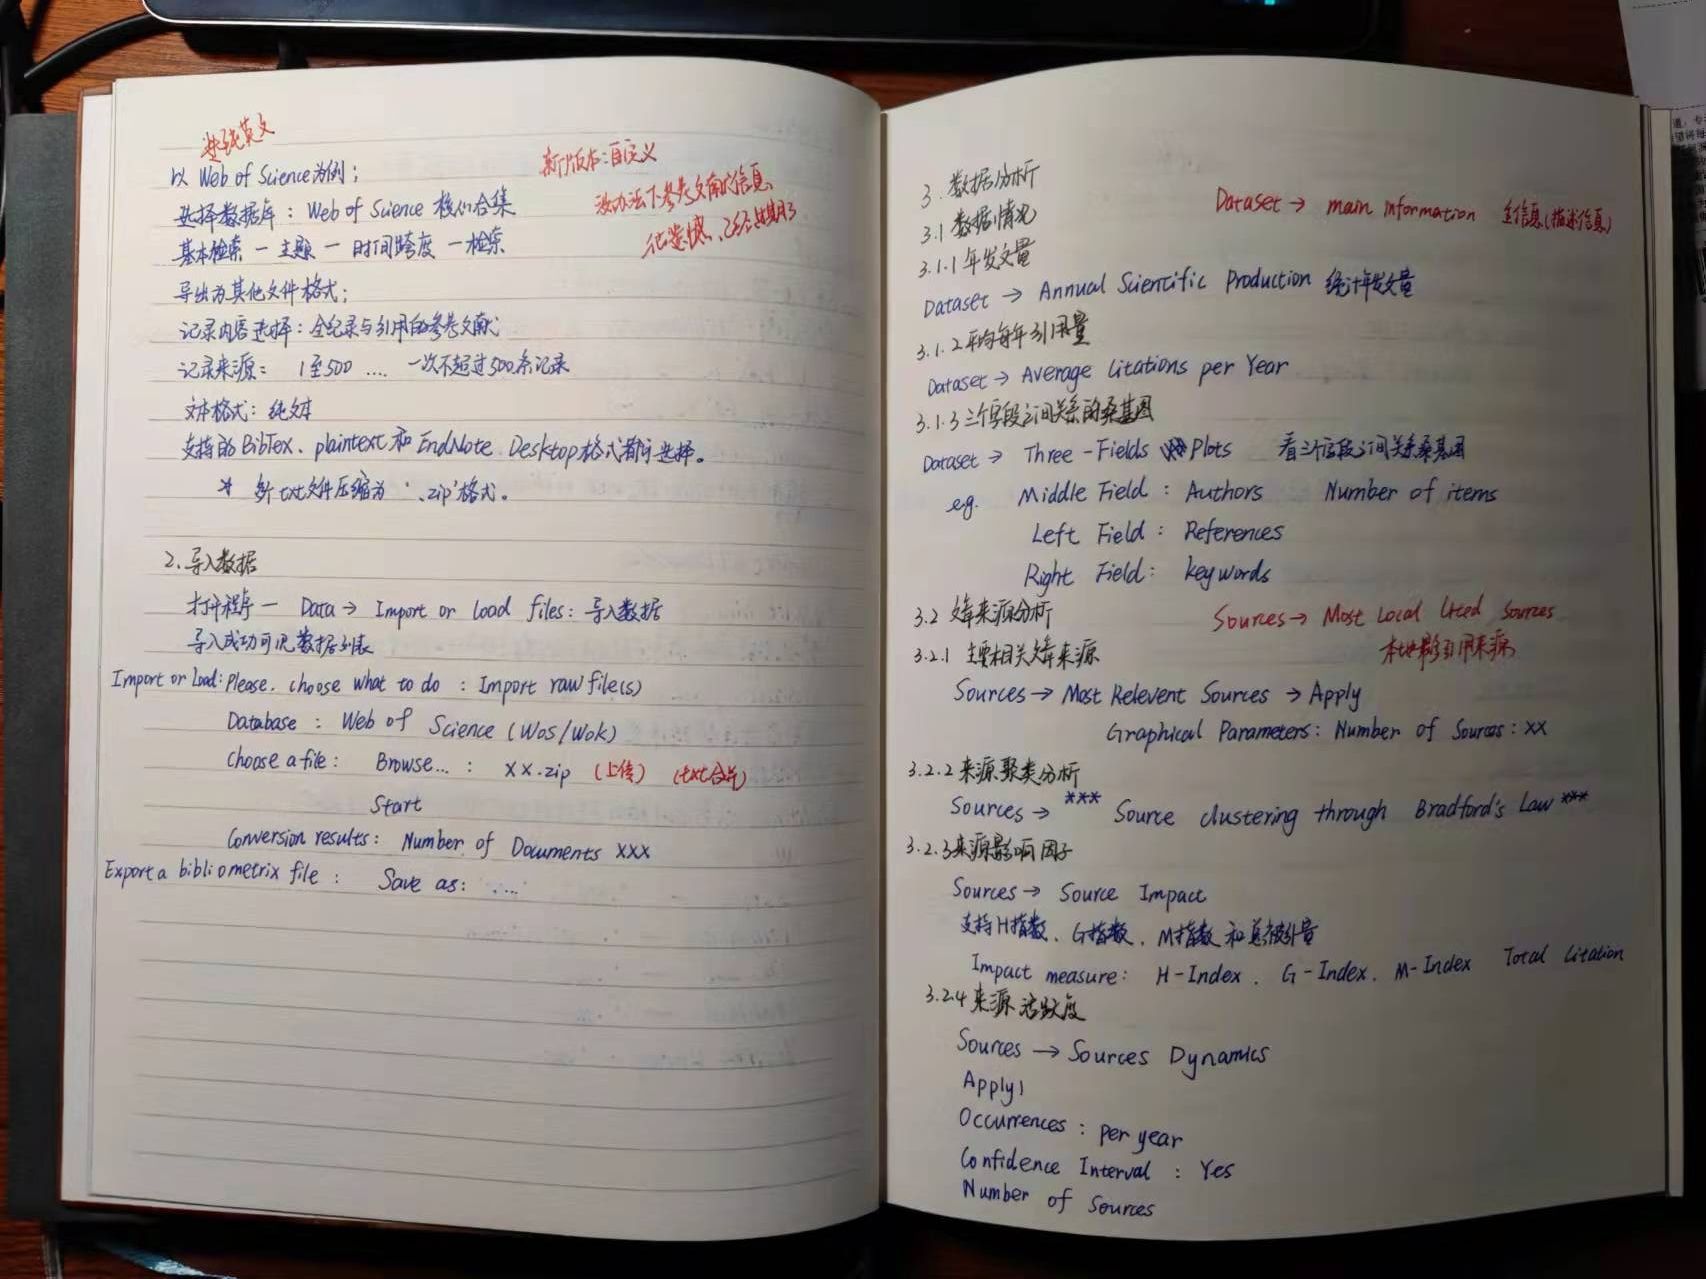 选纯英文
以 Web of Science为例；
选择数据库：Web of Science 核心合集
基本检索 — 主题 — 时间跨度 — 检索
导出为其他文件格式；
记录内容选择：全纪录与引用的参考文献
记录来源： 1至500 .... 一次不超过500条记录
文本格式：纯文本
支持的BibTex、plaintext和EndNote Desktop格式都可选择。
* 多个txt文件压缩为'.zip'格式。
新版本：自定义
没办法下参考文献的信息、
2.导入数据
打开程序 — Data → Import or Load files：导入数据
导入成功可见数据列表
Import or Load: Please, choose what to do : Import raw file(s)
Database : Web of Science (WoS/WoK)
Choose a file: Browse... : XX.zip (上传) (txt合并)
Start
Conversion results: Number of Documents XXX
Export a bibliometrix file : Save as: .....
3. 数据分析
3.1 数据情况
Dataset → main information 主信息(描述信息)
3.1.1 年发文量
Dataset → Annual Scientific Production 统计年发文量
3.1.2 平均每年引用量
Dataset → Average Citations per Year
3.1.3 三个字段之间关系的桑基图
Dataset → Three-Fields Plots 看三个字段之间关系桑基图
eg. Middle Field : Authors Number of items
Left Field : References
Right Field : keywords
3.2 文章来源分析
Sources → Most Local Cited Sources
3.2.1 主要相关文章来源
Sources → Most Relevent Sources → Apply
Graphical Parameters: Number of Sources: XX
3.2.2 来源聚类分析
Sources → *** Source clustering through Bradford's Law ***
3.2.3 来源影响因子
Sources → Source Impact
支持H指数、G指数、M指数和总被引量
Impact measure: H-Index、G-Index、M-Index Total Citation
3.2.4 来源活跃度
Sources → Sources Dynamics
Apply;
Occurrences : per year
Confidence Interval : Yes
Number of Sources